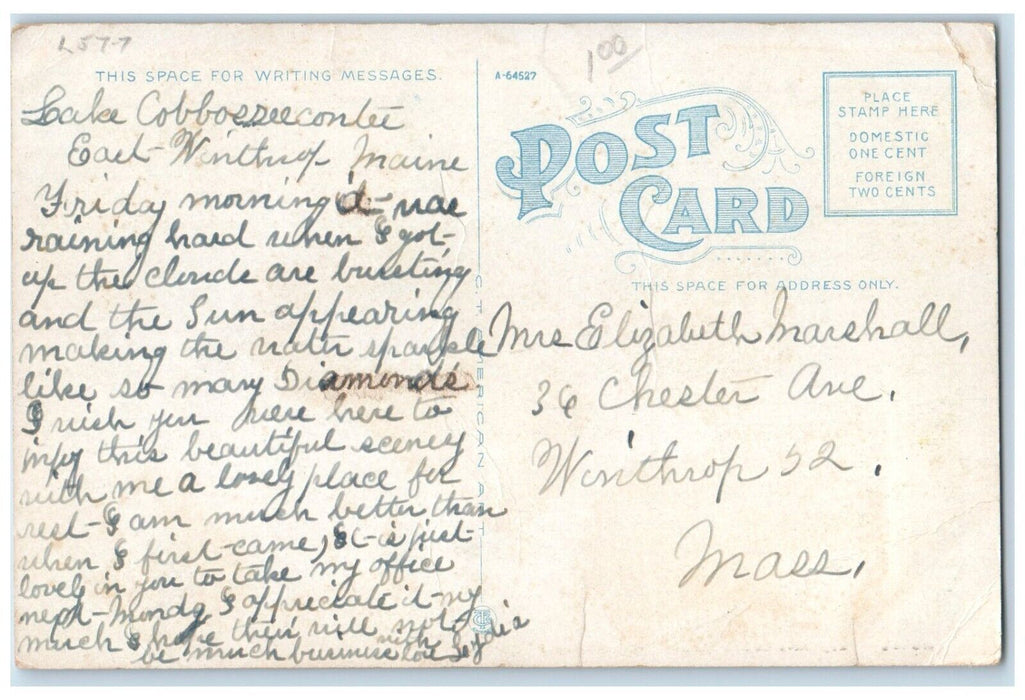 L577
1.00
THIS SPACE FOR WRITING MESSAGES.
A-64527
POST
CARD
PLACE
STAMP HERE
DOMESTIC
ONE CENT
FOREIGN
TWO CENTS
THIS SPACE FOR ADDRESS ONLY.
Lake Cobbosseecontee
East Winthrop Maine
Friday morning it was
raining hard when I got
up the clouds are bursting
and the Sun appearing
making the water sparkle
like so many Diamonds
I wish you were here to
injoy this beautiful scenery
with me a lovely place for
rest I am much better than
when I first came, it is just
lovely in you to take my office
next Monday I appreciate it very
much I hope their will not
be much business with love Lydia
C. T. AMERICAN ART
Mrs Elizabeth Marshall,
36 Chester Ave.
Winthrop 52.
Mass.